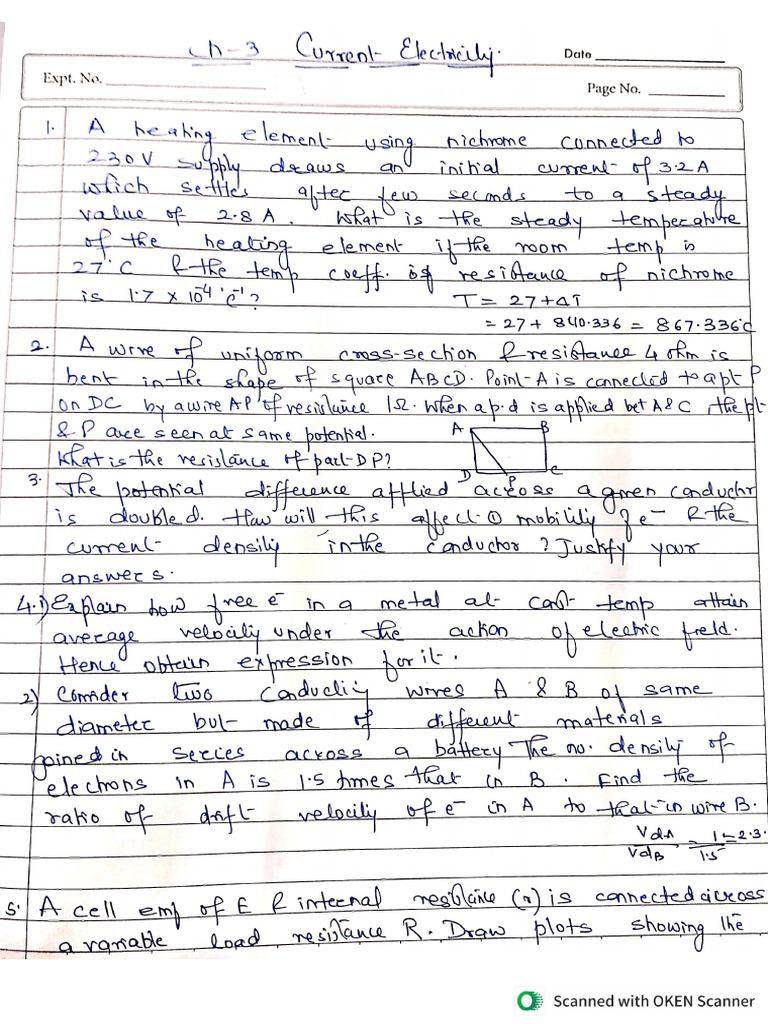 Ch-3 Current Electricity.
Date
Expt. No.
Page No.
1. A heating element using nichrome connected to
230V supply draws an initial current of 3.2A
which settles after few seconds to a steady
value of 2.8A. What is the steady temperature
of the heating element if the room temp is
27°C & the temp coeff. of resistance of nichrome
is 1.7 x 10⁻⁴ °c⁻¹?
T = 27+ΔT
= 27+ 840.336 = 867.336°c
2. A wire of uniform cross-section & resistance 4 ohm is
bent in the shape of square ABCD. Point-A is connected to a pt P
on DC by a wire AP of resistance 1Ω. When a p.d is applied bet A & C, the pt
& P are seen at same potential.
What is the resistance of part DP?
A B
D P C
3. The potential difference applied across a given conductr
is doubled. How will this affect ① mobility of e⁻ & the
current density in the conductor? Justify your
answers.
4.1) Explain how free e⁻ in a metal at const temp attain
average velocity under the action of electric field.
Hence obtain expression for it.
2) Consider two conducting wires A & B of same
diameter but made of different materials
joined in series across a battery The no. density of
electrons in A is 1.5 times that in B. Find the
ratio of drift velocity of e⁻ in A to that in wire B.
VdA/VdB = 1/1.5 = 2.3.
5. A cell emf of E & internal resistance (r) is connected across
a variable load resistance R. Draw plots showing the
Scanned with OKEN Scanner